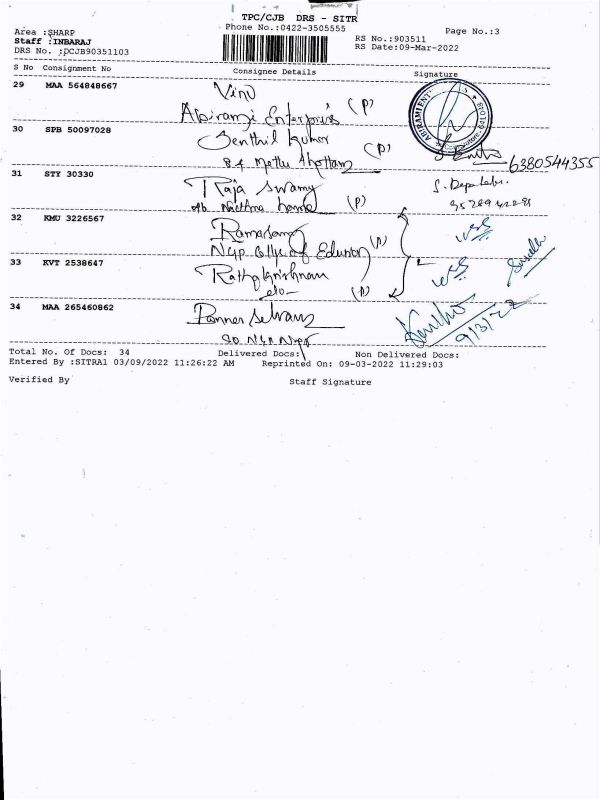 TPC/CJB DRS - SITR
Phone No.:0422-3505555
Page No.:3
Area :SHARP
Staff :INBARAJ
DRS No. :PCJB90351103
RS No.:903511
RS Date:09-Mar-2022
S No Consignment No Consignee Details Signature
29 MAA 564848667 Vino
Abirami Enterprises (P)
30 SPB 50097028 Senthil Kumar
84 Mothu thottam (P)
6380544355
31 STY 30330 Raja Swamy
(P)
32 KMU 3226567 Ramasamy
NGP College of Education (P)
33 KVT 2538647 Rathakrishnan
(P)
34 MAA 265460862 Panner Selvam
9/3/22
Total No. Of Docs: 34 Delivered Docs: Non Delivered Docs:
Entered By :SITRA1 03/09/2022 11:26:22 AM Reprinted On: 09-03-2022 11:29:03
Verified By Staff Signature